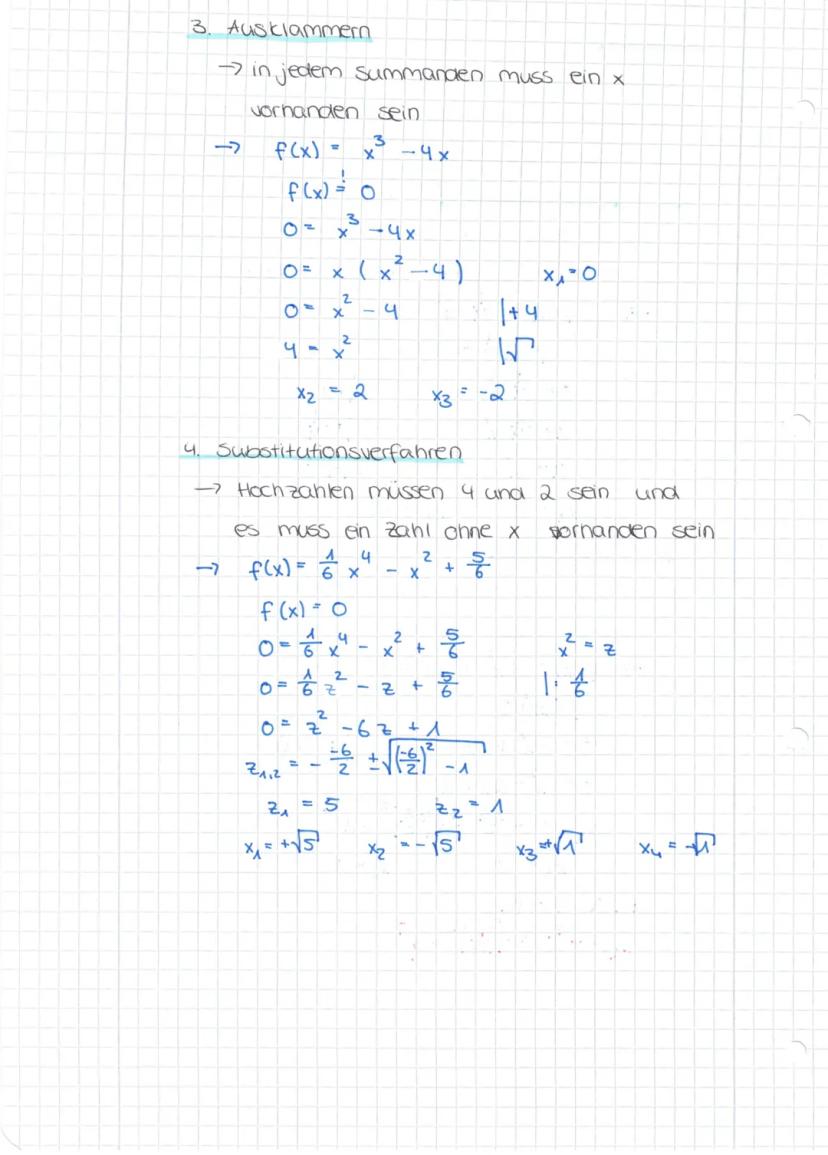 3. Ausklammern
→ in jedem summanden muss ein x
vorhanden sein
→ f(x) = x³ - 4x
f(x) =! 0
0 = x³ - 4x
0 = x (x² - 4) x₁ = 0
0 = x² - 4 |+4
4 = x² |√
x₂ = 2 x₃ = -2
4. Substitutionsverfahren
→ Hochzahlen müssen 4 und 2 sein und
es muss ein Zahl ohne x vorhanden sein
→ f(x) = 1/6 x⁴ - x² + 5/6
f(x) = 0
0 = 1/6 x⁴ - x² + 5/6 x² = z
0 = 1/6 z² - z + 5/6 |: 1/6
0 = z² - 6z + 1
z₁,₂ = - -6/2 ± √((-6/2)² - 1)
z₁ = 5 z₂ = 1
x₁ = +√5 x₂ = -√5 x₃ = +√1 x₄ = -√1